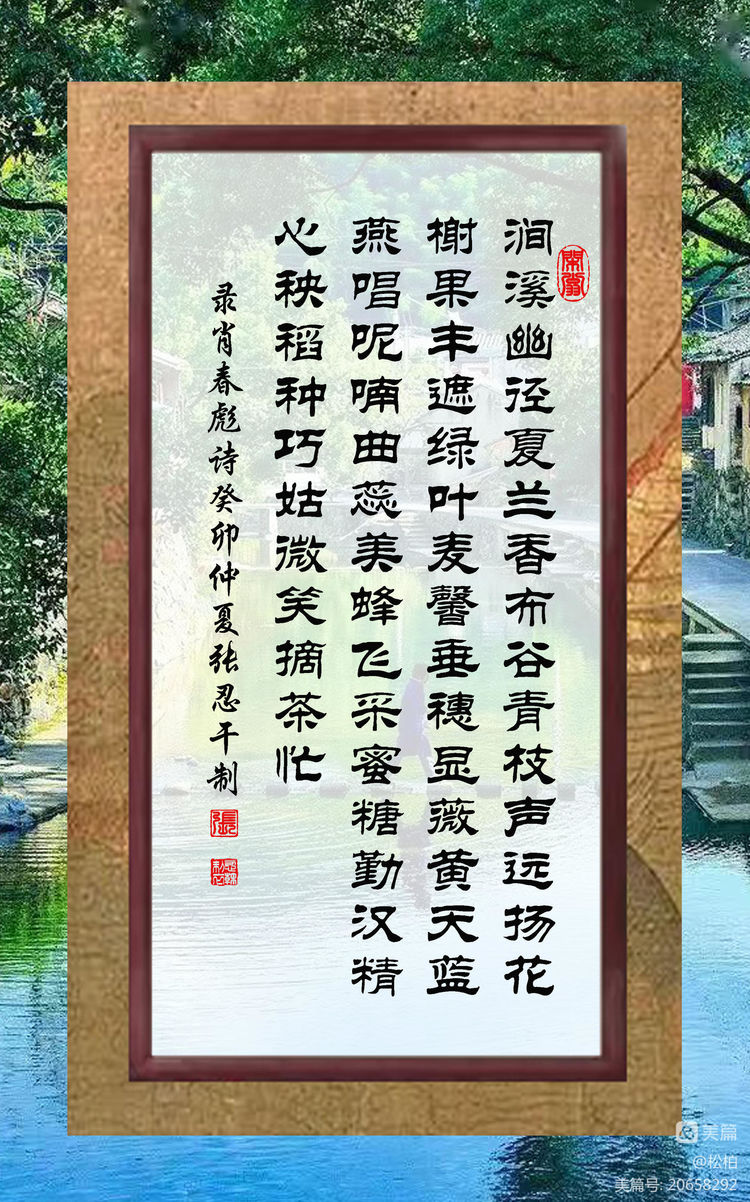 涧溪幽径夏兰香布谷青枝声远扬花
榭果丰遮绿叶麦馨垂穗显薇黄天蓝
燕唱呢喃曲蕊美蜂飞采蜜糖勤汉精
心秧稻种巧姑微笑摘茶忙
录肖春彪诗癸卯仲夏张忍干制
張
美篇
@松柏
美篇号: 20658292